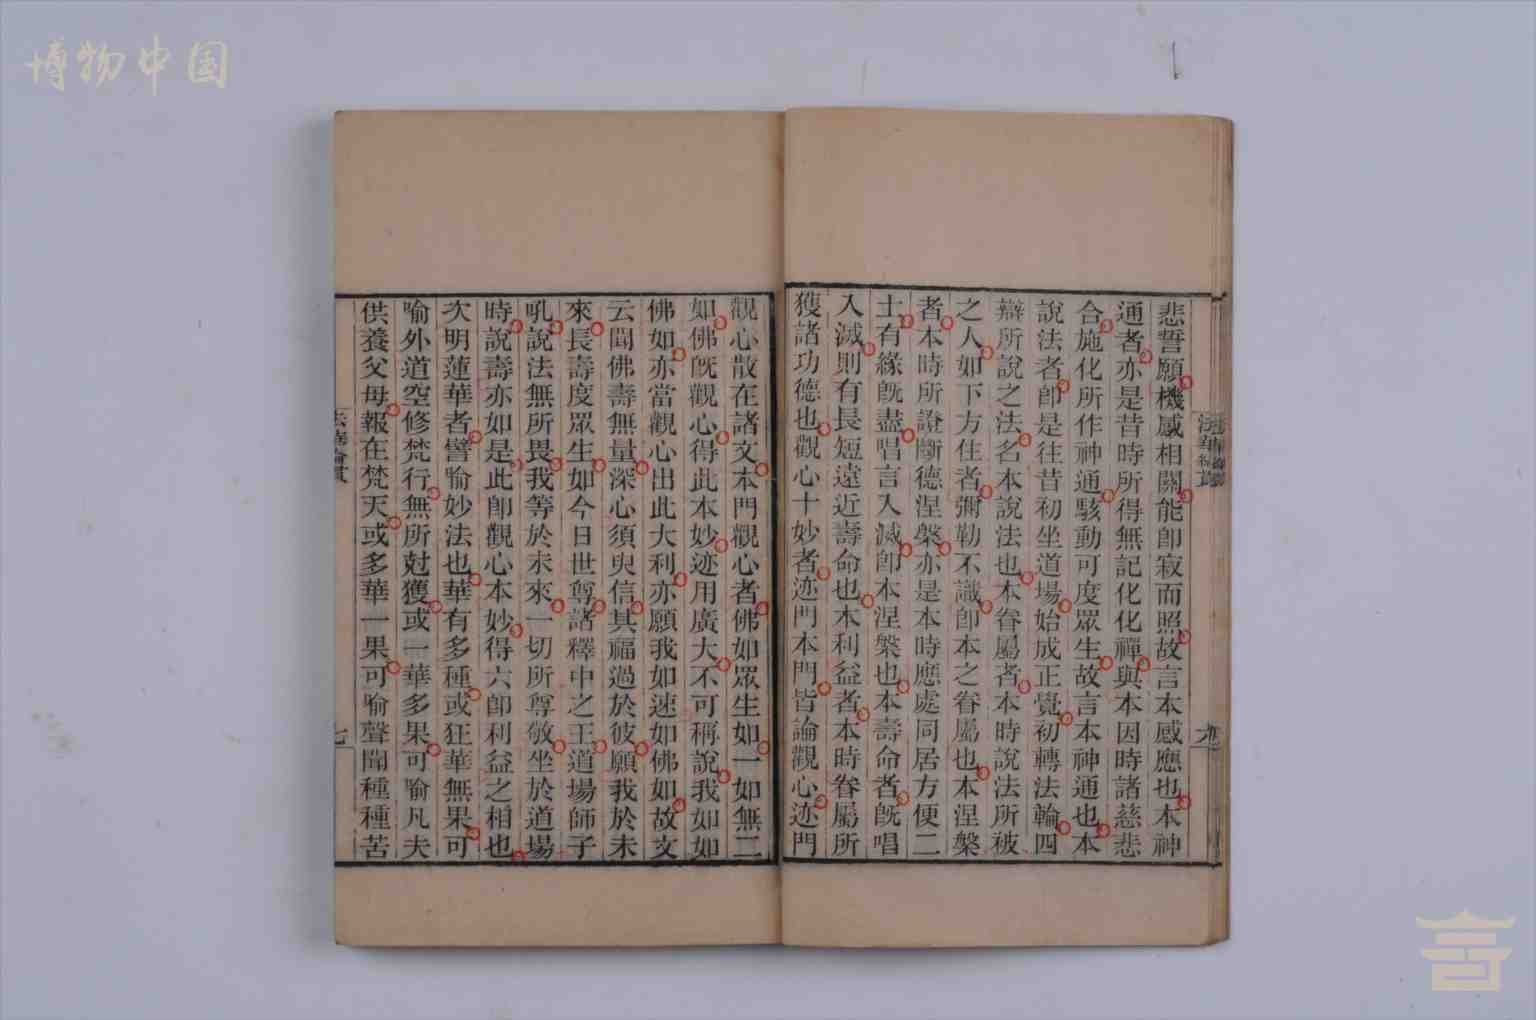 博物中国
悲誓願機感相關能卽寂而照故言本感應也本神
通者亦是昔時所得無記化化禪與本因時諸慈悲
合施化所作神通駭動可度眾生故言本神通也本
說法者卽是往昔初坐道場始成正覺初轉法輪四
辯所說之法名本說法也本眷屬者本時說法所被
之人如下方住者彌勒不識卽本之眷屬也本涅槃
者本時所證斷德涅槃亦是本時應處同居方便二
土有緣旣盡唱言入滅卽本涅槃也本壽命者旣唱
入滅則有長短遠近壽命也本利益者本時眷屬所
獲諸功德也觀心十妙者迹門本門皆論觀心迹門
觀心散在諸文本門觀心者佛如眾生如一如無二
如佛旣觀心得此本妙迹用廣大不可稱說我如如
佛如亦當觀心出此大利亦願我如速如佛如故文
云聞佛壽無量深心須臾信其福過於彼願我於未
來長壽度眾生如今日世尊諸釋中之王道場師子
吼說法無所畏我等於未來一切所尊敬坐於道場
時說壽亦如是此卽觀心本妙得六卽利益之相也
次明蓮華者譬喻妙法也華有多種或狂華無果可
喻外道空修梵行無所尅獲或一華多果可喻凡夫
供養父母報在梵天或多華一果可喻聲聞種種苦
七